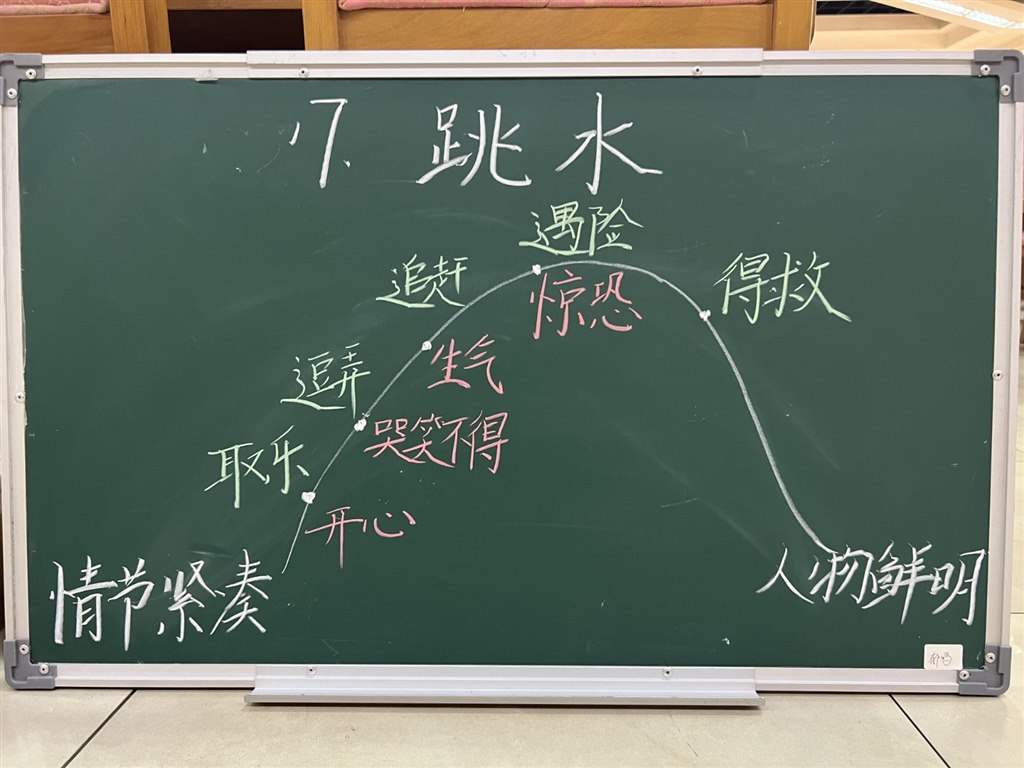 17、跳水
遇险
追赶
得救
惊恐
逗弄
生气
哭笑不得
取乐
开心
情节紧凑
人物鲜明